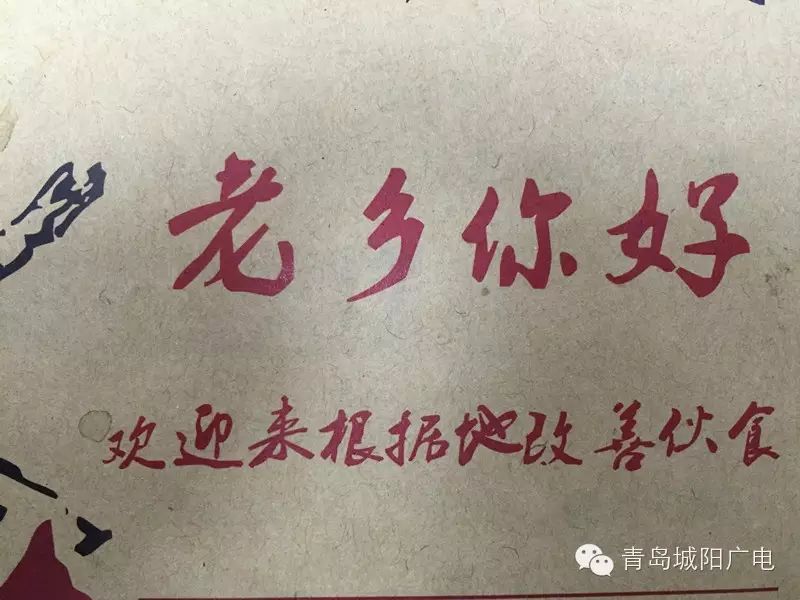 老乡你好
欢迎来根据地改善伙食
青岛城阳广电